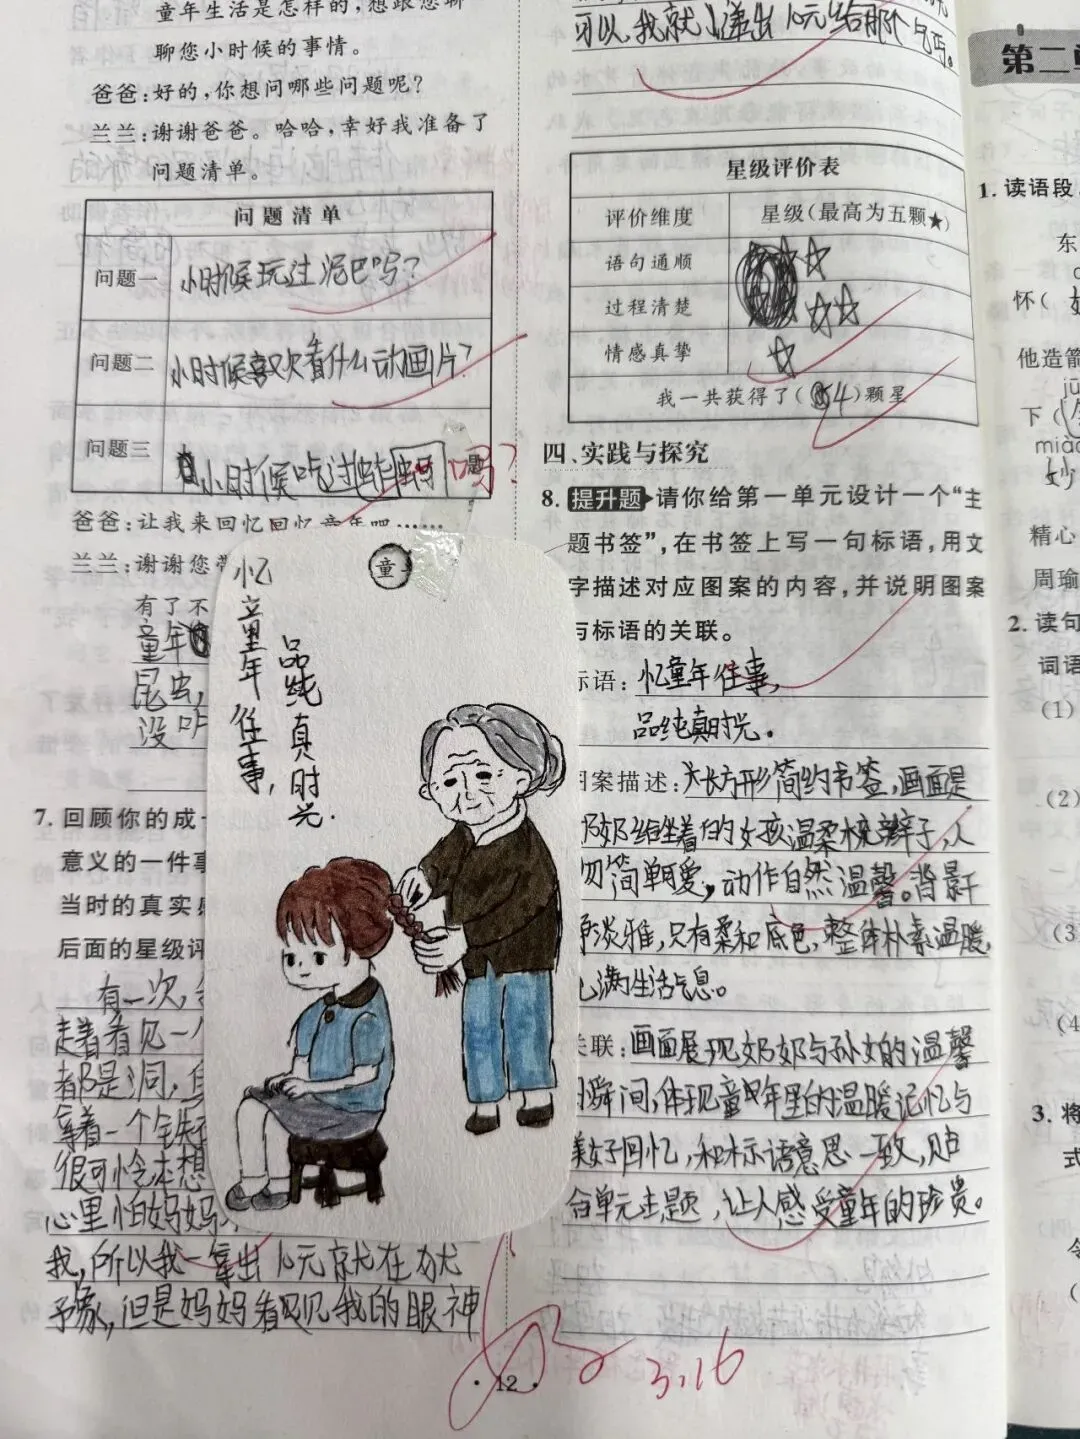 童年生活是怎样的,想跟您聊
聊您小时候的事情。
爸爸:好的,你想问哪些问题呢?
兰兰:谢谢爸爸。哈哈,幸好我准备了
问题清单。
问题清单
问题一 小时候玩过泥巴吗?
问题二 小时候喜欢看什么动画片?
问题三 小时候吃过蚱 吗?
爸爸:让我来回忆回忆童年吧……
兰兰:谢谢您
有了不
童年
昆虫,
没
7. 回顾你的成
意义的一件事
当时的真实感
后面的星级评
有一次,
走着看见一个
都是洞,
拿着一个
很可怜本想
心里怕妈妈
我,所以我一拿出10元就在犹
予象,但是妈妈看见我的眼神
忆童年往事,
品纯真时光.
童
可以,我就递出10元给那个
星级评价表
评价维度 星级(最高为五颗★)
语句通顺 ☆
过程清楚 ☆☆
情感真挚 ☆
我一共获得了(4)颗星
四、实践与探究
8. 提升题 请你给第一单元设计一个“主
题书签”,在书签上写一句标语,用文
字描述对应图案的内容,并说明图案
与标语的关联。
标语:忆童年往事,
品纯真时光.
图案描述:大长方形简约书签,画面是
奶奶给坐着的女孩温柔梳辫子,人
物简单可爱,动作自然温馨。背景干
净淡雅,只有柔和底色,整体朴素温暖,
满生活气息。
关联:画面展现奶奶与孙女的温馨
瞬间,体现童年里的温暖记忆与
美好回忆,和标语意思一致,贴
合单元主题,让人感受童年的珍贵。
3.16
· 12 ·
第二单
1. 读语段
东
怀(
他造箭
下(
miào
妙
精心
周瑜
2. 读句
词语
(1)
(2)
(3)
(4)
3. 将
式
(